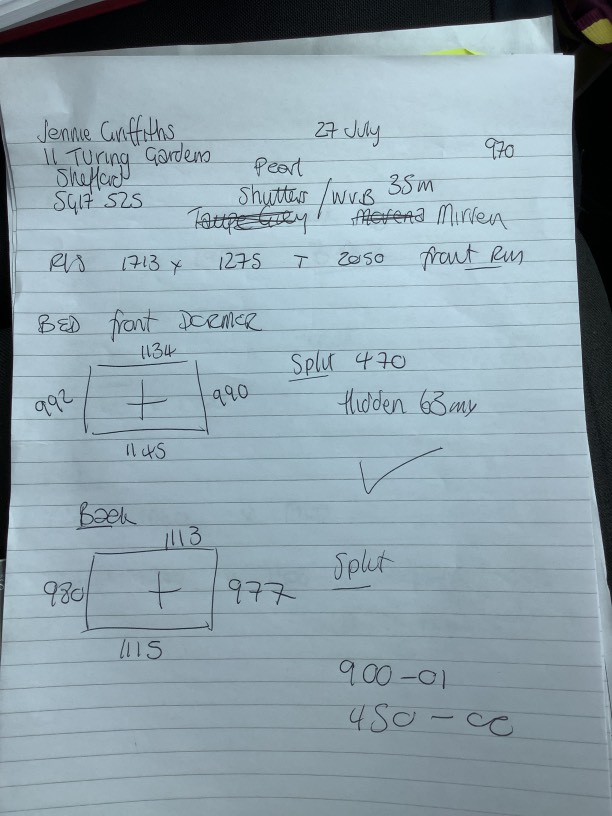 Jennie Griffiths
27 July
970
11 Turing Gardens
Pearl
Shefford
Shutters / W.V.B 35m
SG17 5ZS
Taupe Grey Mirren
1713 x 1275 T 2050 front Rm
BED front DORMER
1134
Split 470
992
990
Hidden 63m
1145
Back
1113
Split
980
977
1115
900-01
450-